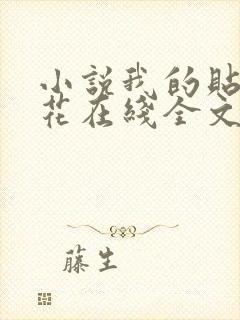 小説我的貼
花在綫全文
藤生